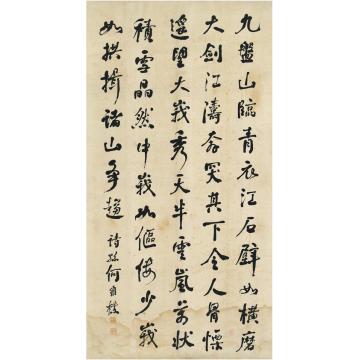 九盤山臨青衣江石壁如橫磨
大劍江濤奔突其下令人骨慄
遥望大峩秀天半雲嵐萬狀
積雪晶然中峩如傴僂少峩
如拱揖諸山爭趨 詩孫何維樸